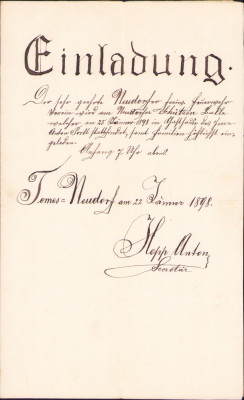 Einladung.
Der sehr geehrte Neudorfer freiw. Feuerwehr
Verein wird am Neudorfer Schützen Balle
welcher am 25 Jänner 1898 im Gasthause des Herrn
Anton stattfindet, samt Familien höflichst ein-
geladen.
Anfang 7 Uhr abends.
Temes-Neudorf am 22 Jänner 1898.
Hepp Anton
Secretär